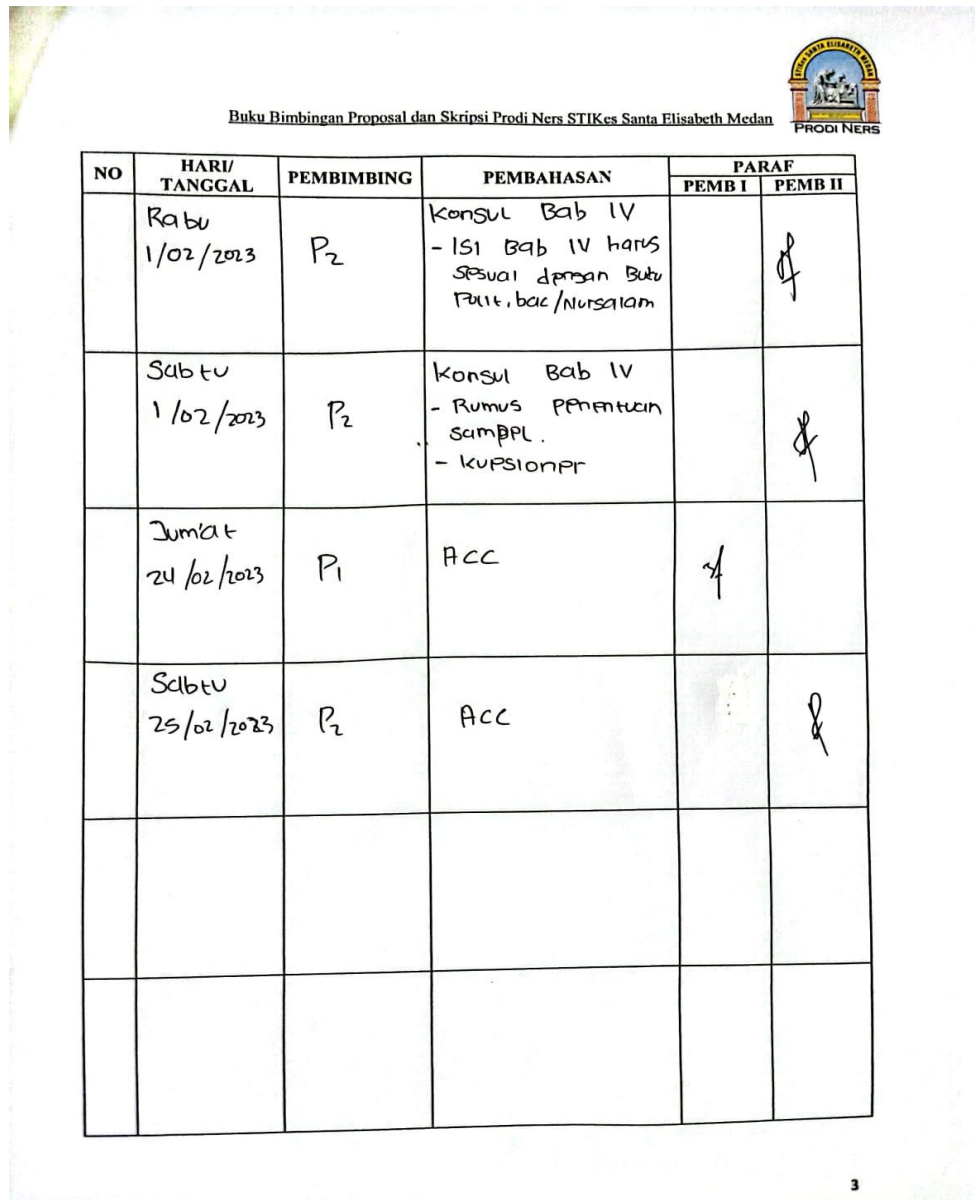 STIKes SANTA ELISABETH MEDAN
PRODI NERS
Buku Bimbingan Proposal dan Skripsi Prodi Ners STIKes Santa Elisabeth Medan
NO HARI/ TANGGAL PEMBIMBING PEMBAHASAN PARAF
PEMB I PEMB II
Rabu
1/02/2023 P2
Konsul Bab IV
- Isi Bab IV harus
sesuai dengan Buku
Polit, bac/Nursalam
Sabtu
1/02/2023 P2
Konsul Bab IV
- Rumus penentuan
sampel.
- kuesioner
Jum'at
24/02/2023 P1 ACC
Sabtu
25/02/2023 P2 ACC
3